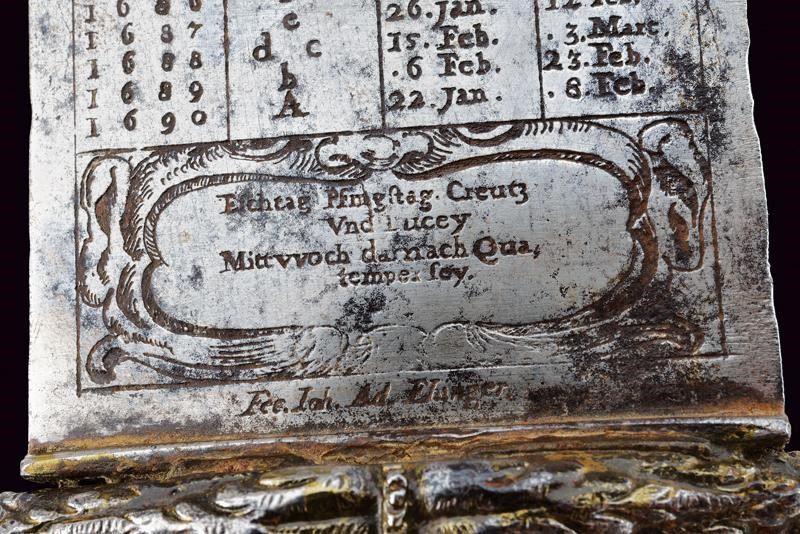 1 6 8 6 e 26. Jan. 12. Feb.
1 6 8 7 d c 15. Feb. . 3. Mart.
1 6 8 8 b . 6 Feb. 23. Feb.
1 6 8 9 A 22. Jan. . 8. Feb.
1 6 9 0
Eschtag Pfingstag. Creutz
Vnd Lucey
Mittvvoch darnach Qua,
temper sey.
Fec. Joh. Ad.